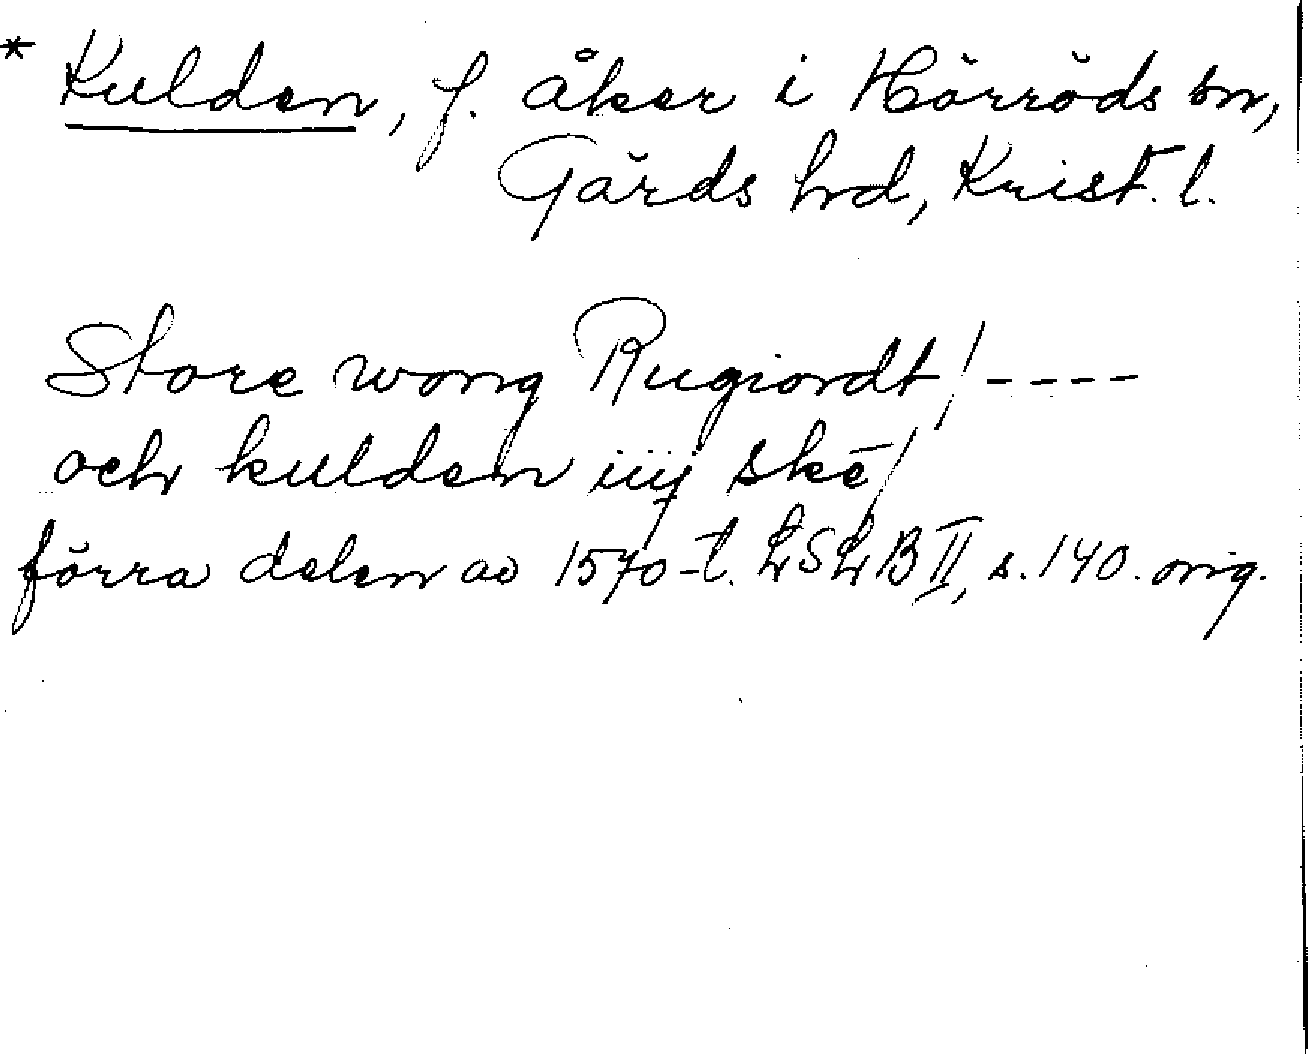 * Kulden, f. åker i Hörröds sn,
Gärds hrd, Krist. l.
Store wong Rugiordt / ----
och kulden iiij ske /
förra delen av 1570-t. LSLB II, s. 140. orig.